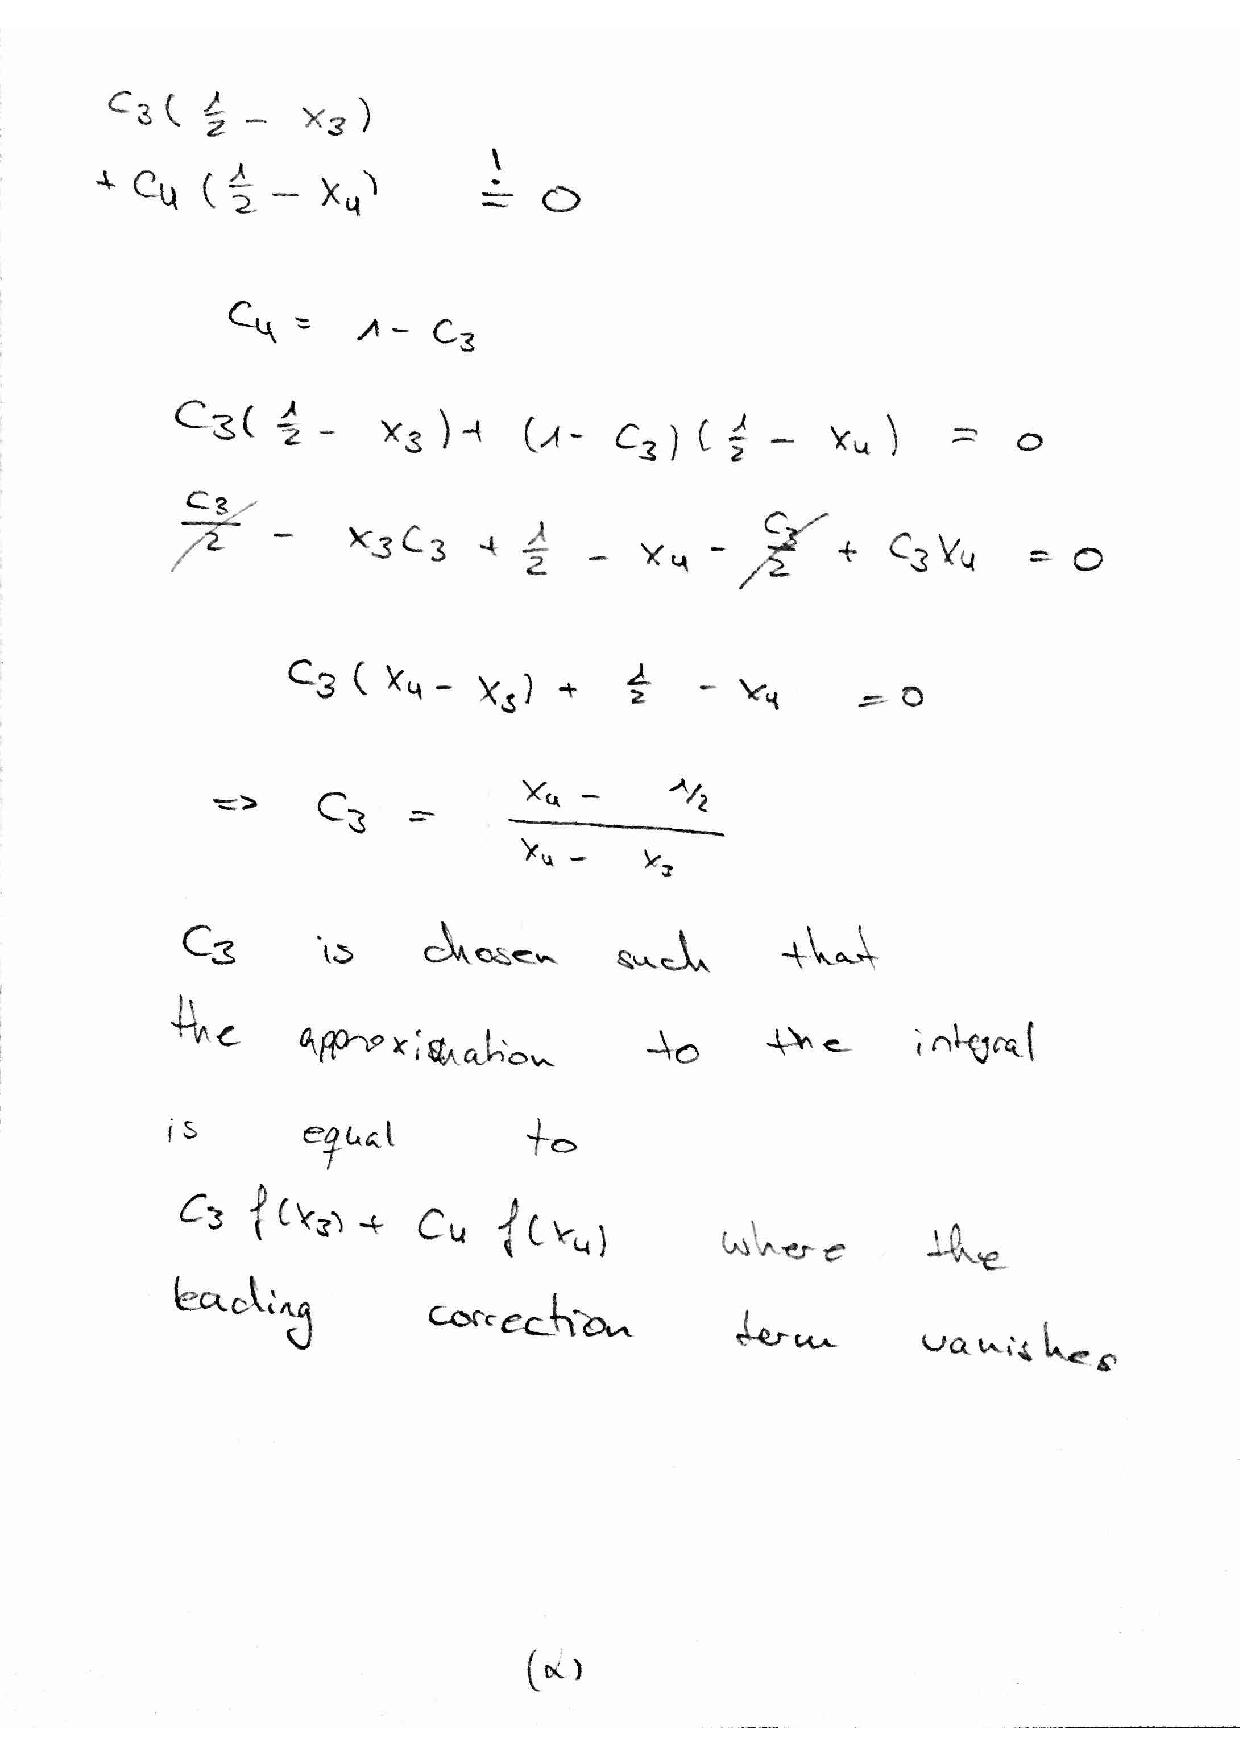 C₃( 1/2 - x₃)
+ C₄ ( 1/2 - x₄) != 0
C₄ = 1 - C₃
C₃( 1/2 - x₃ ) + (1 - C₃) ( 1/2 - x₄ ) = 0
C₃/2 - x₃C₃ + 1/2 - x₄ - C₃/2 + C₃x₄ = 0
C₃ ( x₄ - x₃) + 1/2 - x₄ = 0
=> C₃ = (x₄ - 1/2) / (x₄ - x₃)
C₃ is chosen such that
the approximation to the integral
is equal to
C₃ f(x₃) + C₄ f(x₄) where the
leading correction term vanishes
(α)